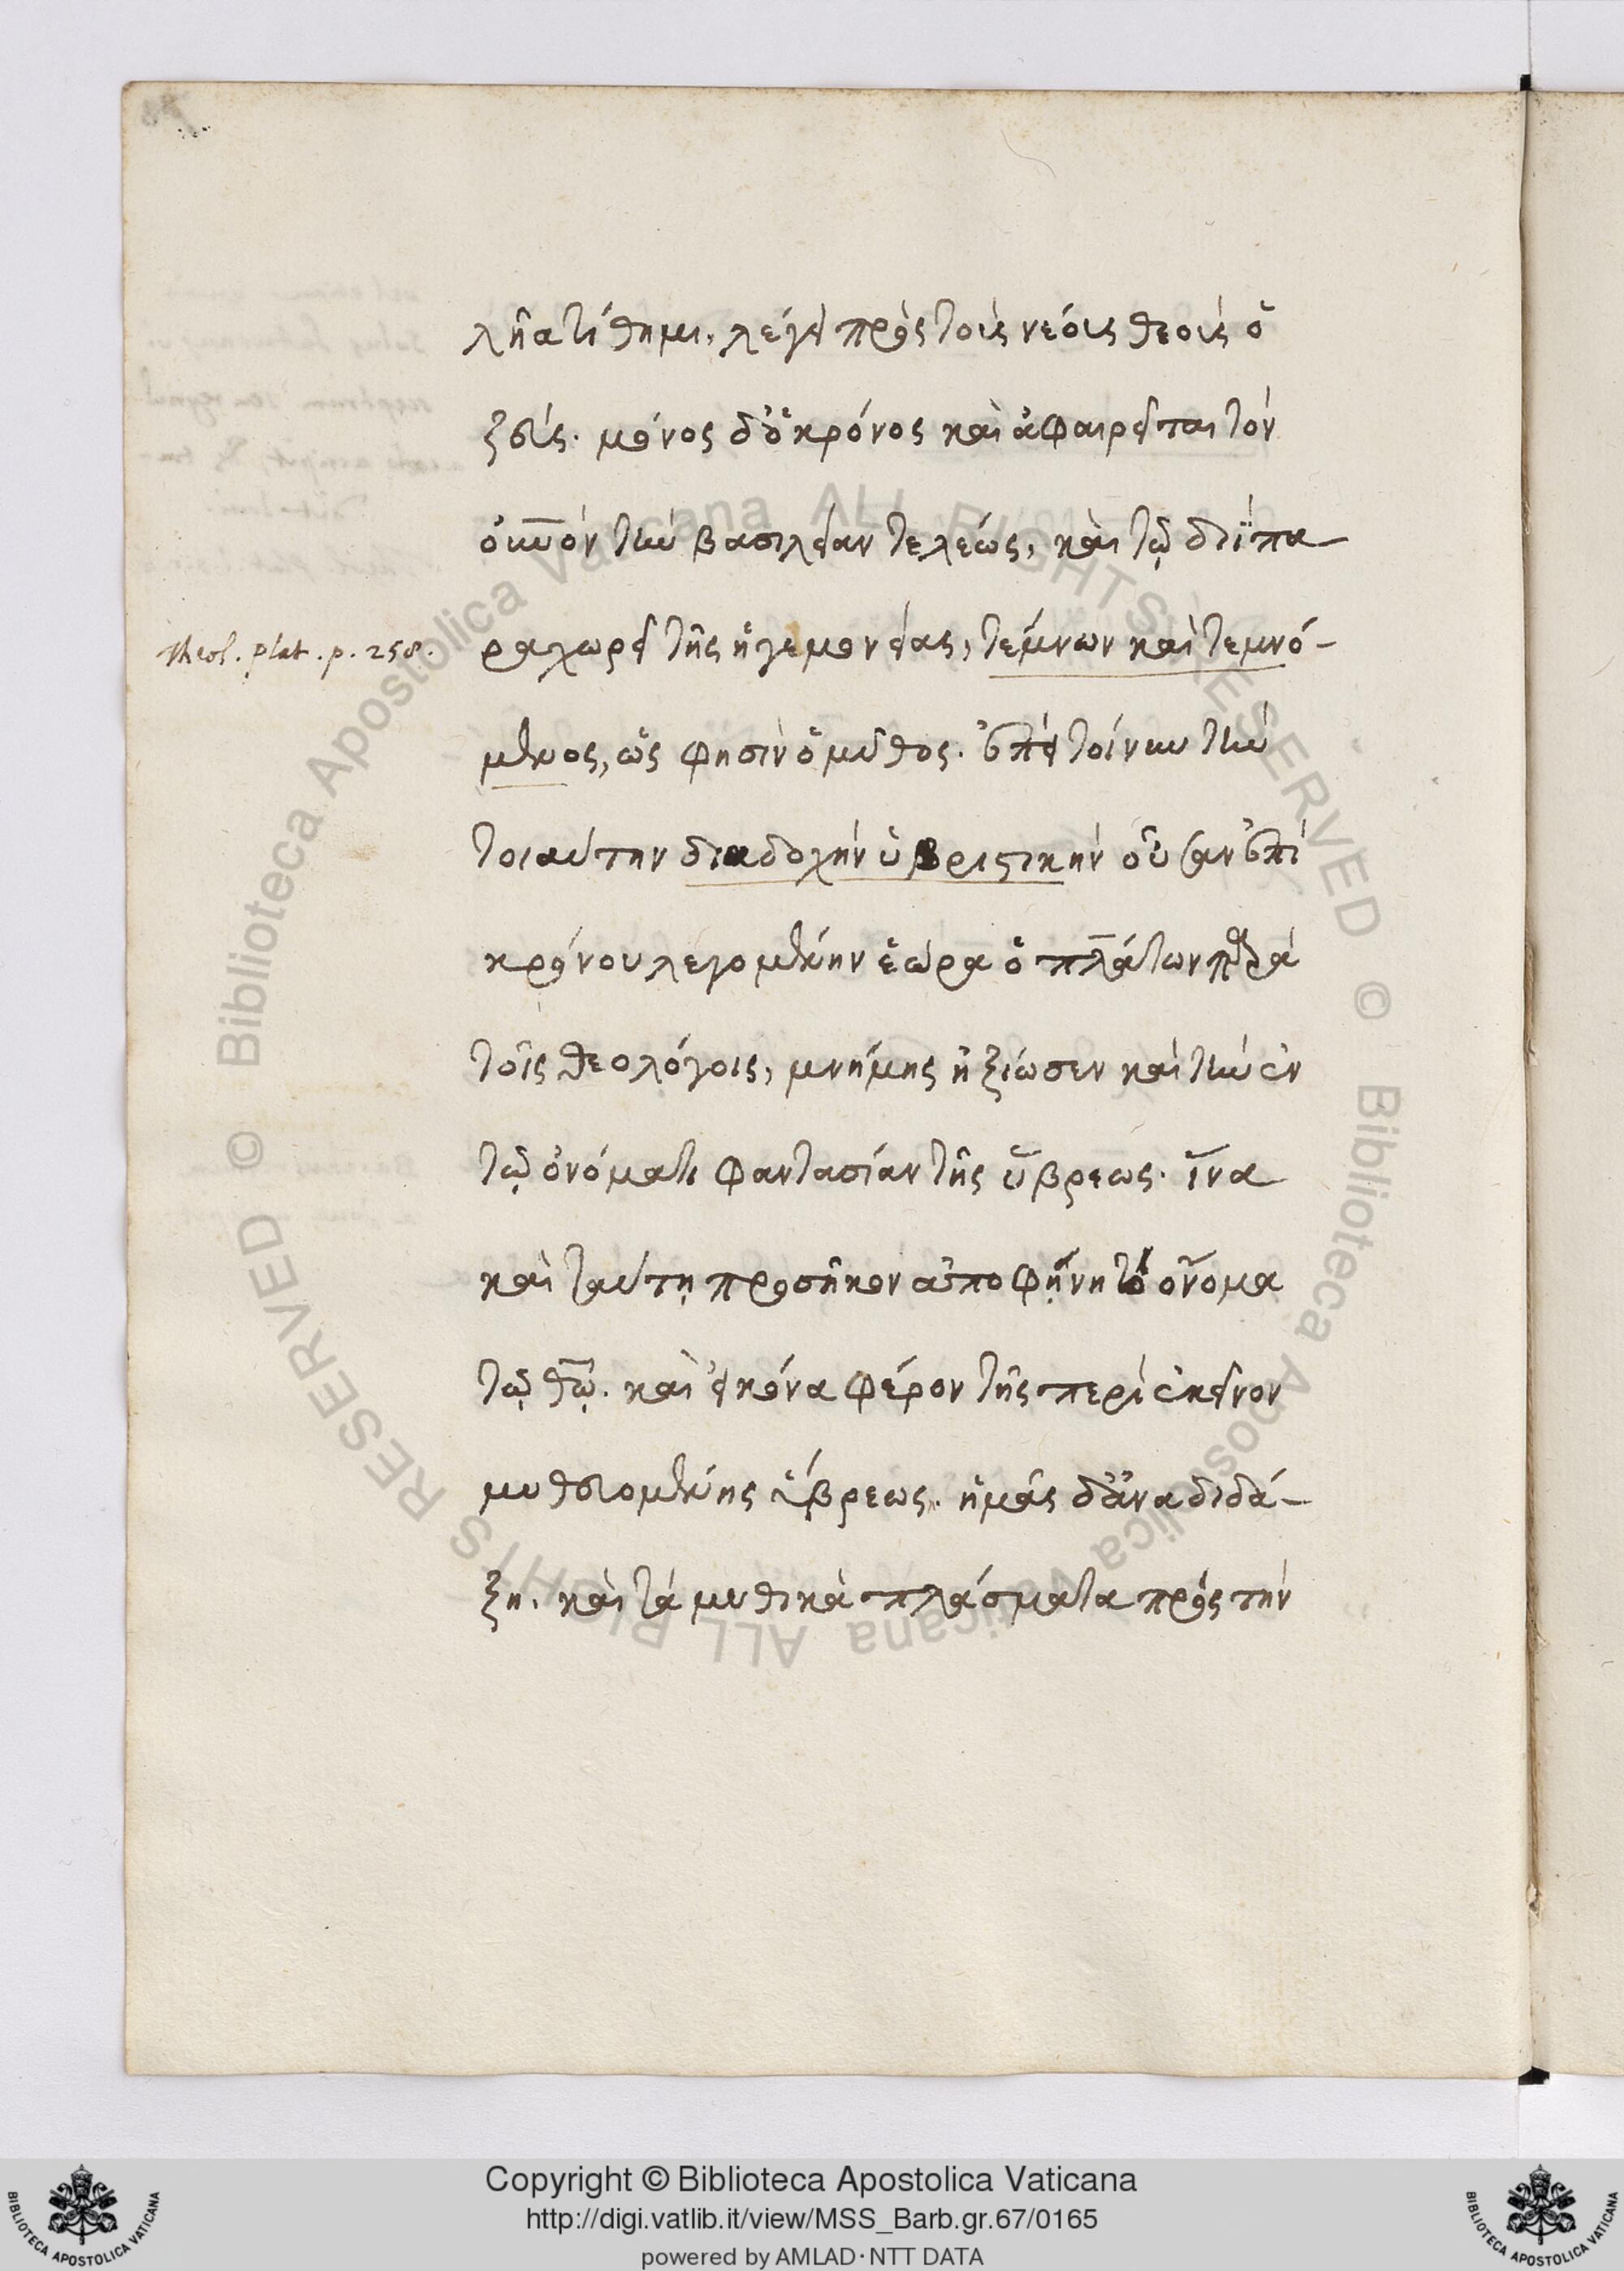 λῆα τίθημι. λέγει πρὸς τοὺς νέους θεοὺς ὁ
ζεύς. μόνος δ' ὁ κρόνος καὶ ἀφαιρεῖται τὸν
οὐνὸν τὴν βασιλείαν τελέως, καὶ τῷ διῒ πα-
Theol. plat. p. 258. ραχωρεῖ τῆς ἡγεμονείας, τέμνων καὶ τεμνό-
μενος, ὥς φησὶν ὁ μῦθος. ἐπεὶ τοίνυν τὴν
τοιαύτην διαδοχὴν ὑβριστικὴν οὖσαν ἐπὶ
κρόνου λεγομένην ἑώρα ὁ πλάτων παρὰ
τοῖς θεολόγοις, μνήμης ἠξίωσεν καὶ τὴν ἐν
τῷ ὀνόματι φαντασίαν τῆς ὕβρεως. ἵνα
καὶ ταύτῃ προσῆκον ἀποφήνῃ τὸ ὄνομα
τῷ θῷ. καὶ εἰκόνα φέρον τῆς περὶ ἐκεῖνον
μυθευομένης ὕβρεως. ἡμᾶς δ' ἀναδιδά-
ξῃ. καὶ τὰ μυθικὰ πλάσματα πρὸς τὴν
Copyright © Biblioteca Apostolica Vaticana
http://digi.vatlib.it/view/MSS_Barb.gr.67/0165
powered by AMLAD·NTT DATA
BIBLIOTECA APOSTOLICA VATICANA
BIBLIOTECA APOSTOLICA VATICANA
© Biblioteca Apostolica Vaticana ALL RIGHTS RESERVED
© Biblioteca Apostolica Vaticana ALL RIGHTS RESERVED